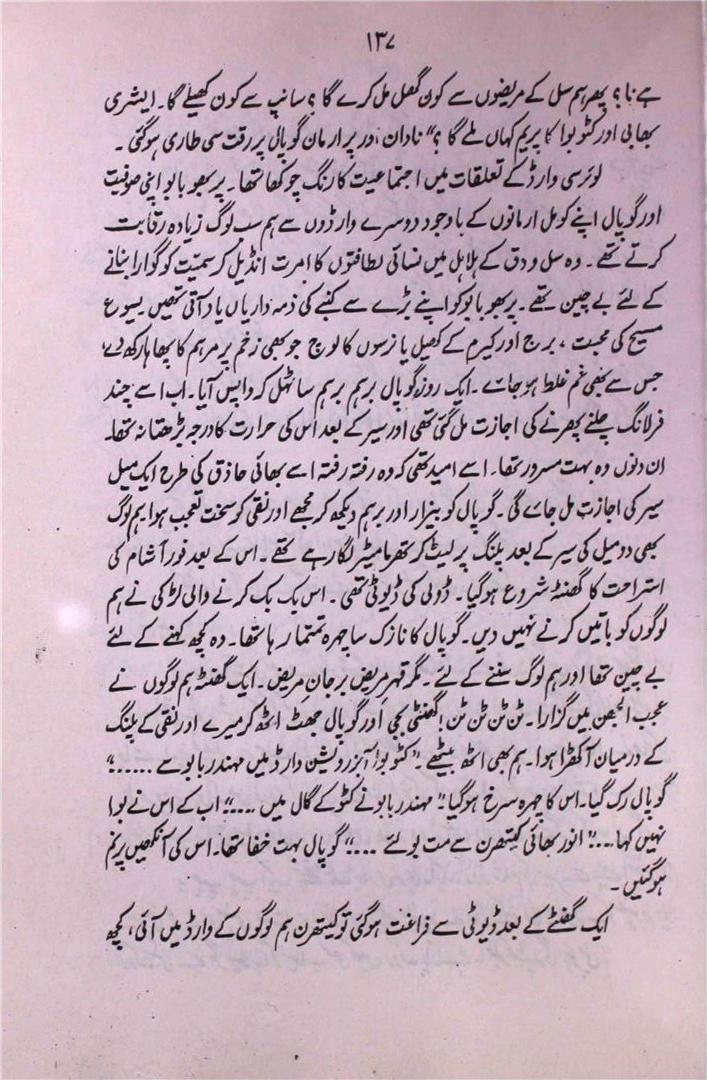 ۱۳۷
ہے نا؟ پھر ہم سل کے مریضوں سے کون گھل مل کرے گا؟ سانپ سے کون کھیلے گا۔ ایشری
بھابی اور کٹو بوا کا پریم کہاں ملے گا؟“ نادان، در پر ارمان گوپال پر رقت سی طاری ہوگئی۔
لوئرسی وارڈ کے تعلقات میں اجتماعیت کا رنگ چوکھا تھا۔ پربھو بابو اپنی صوفیت
اور گوپال اپنے کومل ارمانوں کے باوجود دوسرے وارڈوں سے ہم سب لوگ زیادہ رقابت
کرتے تھے۔ وہ سل و دق کے ہلاہل میں نسائی لطافتوں کا امرت انڈیل کر سمیّت کو گوارا بنانے
کے لئے بے چین تھے۔ پربھو بابو کو اپنے بڑے سے کنبے کی ذمہ داریاں یاد آتی تھیں۔ یسوع
مسیح کی محبت، برج اور کیرم کے کھیل یا نرسوں کا لوچ جو بھی زخم پر مرہم کا پھاہا رکھ دے،
جس سے بھی غم غلط ہو جائے۔ ایک روز گوپال برہم برہم سا ٹہل کر واپس آیا۔ اب اسے چند
فرلانگ چلنے پھرنے کی اجازت مل گئی تھی اور سیر کے بعد اس کی حرارت کا درجہ بڑھتا نہ تھا۔
ان دنوں وہ بہت مسرور تھا۔ اسے امید تھی کہ وہ رفتہ رفتہ اسے بھائی حاذق کی طرح ایک میل
سیر کی اجازت مل جائے گی۔ گوپال کو بیزار اور برہم دیکھ کر مجھے اور نقی کو سخت تعجب ہوا ہم لوگ
بھی دو میل کی سیر کے بعد پلنگ پر لیٹ کر تھرمامیٹر لگا رہے تھے۔ اس کے بعد فوراً شام کی
استراحت کا گھنٹہ شروع ہوگیا۔ ڈولی کی ڈیوٹی تھی۔ اس بک بک کرنے والی لڑکی نے ہم
لوگوں کو باتیں کرنے نہیں دیں۔ گوپال کا نازک سا چہرہ تمتما رہا تھا۔ وہ کچھ کہنے کے لئے
بے چین تھا اور ہم لوگ سننے کے لئے۔ مگر قہرِ مریض بر جانِ مریض۔ ایک گھنٹہ ہم لوگوں نے
عجب الجھن میں گزارا۔ ٹن ٹن ٹن ٹن! گھنٹی بجی اور گوپال جھٹ اٹھ کر میرے اور نقی کے پلنگ
کے درمیان آ کھڑا ہوا۔ ہم بھی اٹھ بیٹھے۔ ”کٹو بوا آبزرویشن وارڈ میں مہندر بابو سے .....“
گوپال رک گیا۔ اس کا چہرہ سرخ ہوگیا۔ ”مہندر بابو نے کٹو کے گال میں ....“ اب کے اس نے بوا
نہیں کہا... ”انور بھائی کیتھرن سے مت بولئے ....“ گوپال بہت خفا تھا۔ اس کی آنکھیں پرنم
ہوگئیں۔
ایک گھنٹے کے بعد ڈیوٹی سے فراغت ہوگئی تو کیتھرن ہم لوگوں کے وارڈ میں آئی، کچھ